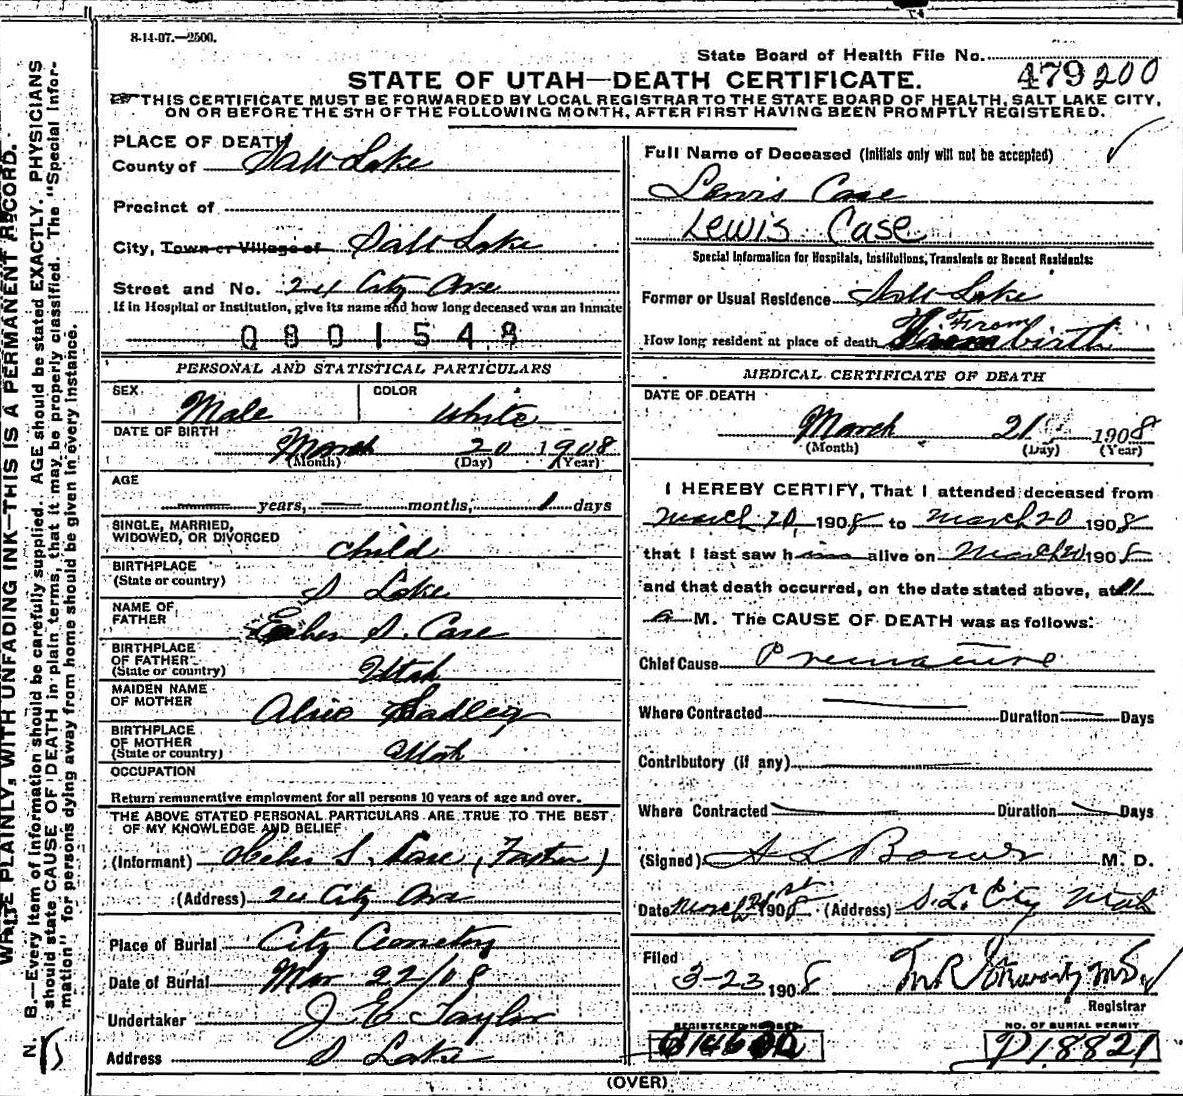 8-14-07.—2500.
State Board of Health File No. 479200
STATE OF UTAH—DEATH CERTIFICATE.
THIS CERTIFICATE MUST BE FORWARDED BY LOCAL REGISTRAR TO THE STATE BOARD OF HEALTH, SALT LAKE CITY,
ON OR BEFORE THE 5TH OF THE FOLLOWING MONTH, AFTER FIRST HAVING BEEN PROMPTLY REGISTERED.
PLACE OF DEATH
County of Salt Lake
Precinct of
City, Town or Village of Salt Lake
Street and No. 24 City Ave
If in Hospital or Institution, give its name and how long deceased was an inmate
0801548
PERSONAL AND STATISTICAL PARTICULARS
SEX Male
COLOR White
DATE OF BIRTH March 20 1908
(Month) (Day) (Year)
AGE
years, months, 1 days
SINGLE, MARRIED,
WIDOWED, OR DIVORCED child
BIRTHPLACE
(State or country) S Lake
NAME OF
FATHER S. Case
BIRTHPLACE
OF FATHER
(State or country) Utah
MAIDEN NAME
OF MOTHER
BIRTHPLACE
OF MOTHER
(State or country) Utah
OCCUPATION
Return remunerative employment for all persons 10 years of age and over.
THE ABOVE STATED PERSONAL PARTICULARS ARE TRUE TO THE BEST
OF MY KNOWLEDGE AND BELIEF
(Informant) Heber S. Case, (Father)
(Address) 24 City Ave
Place of Burial City Cemetery
Date of Burial Mar 22/08
Undertaker J E Taylor
Address S Lake
Full Name of Deceased (Initials only will not be accepted)
Lewis Case
LEWIS CASE
Special Information for Hospitals, Institutions, Transients or Recent Residents:
Former or Usual Residence Salt Lake
How long resident at place of death From birth
MEDICAL CERTIFICATE OF DEATH
DATE OF DEATH
March 21 1908
(Month) (Day) (Year)
I HEREBY CERTIFY, That I attended deceased from
March 20, 1908 to March 20 1908
that I last saw him alive on March 20 1908
and that death occurred, on the date stated above, at 11
a M. The CAUSE OF DEATH was as follows:
Chief Cause Premature
Where Contracted Duration Days
Contributory (if any)
Where Contracted Duration Days
(Signed) Bower M. D.
Date March 21st 1908 (Address) S. L. City Utah
Filed
3-23 1908
Registrar
REGISTERED NUMBER
NO. OF BURIAL PERMIT
D18821
(OVER)
WRITE PLAINLY, WITH UNFADING INK—THIS IS A PERMANENT RECORD.
N. B.—Every item of information should be carefully supplied. AGE should be stated EXACTLY. PHYSICIANS
should state CAUSE OF DEATH in plain terms, that it may be properly classified. The "Special Infor-
mation" for persons dying away from home should be given in every instance.